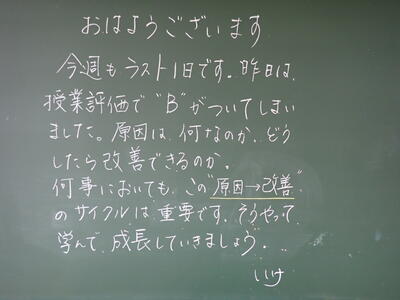 おはようございます
今週もラスト1日です。昨日は、
授業評価で"B"がついてしまい
ました。原因は、何なのか、どう
したら改善できるのか。
何事においても、この"原因→改善"
のサイクルは重要です。そうやって
学んで、成長していきましょう。
いけ